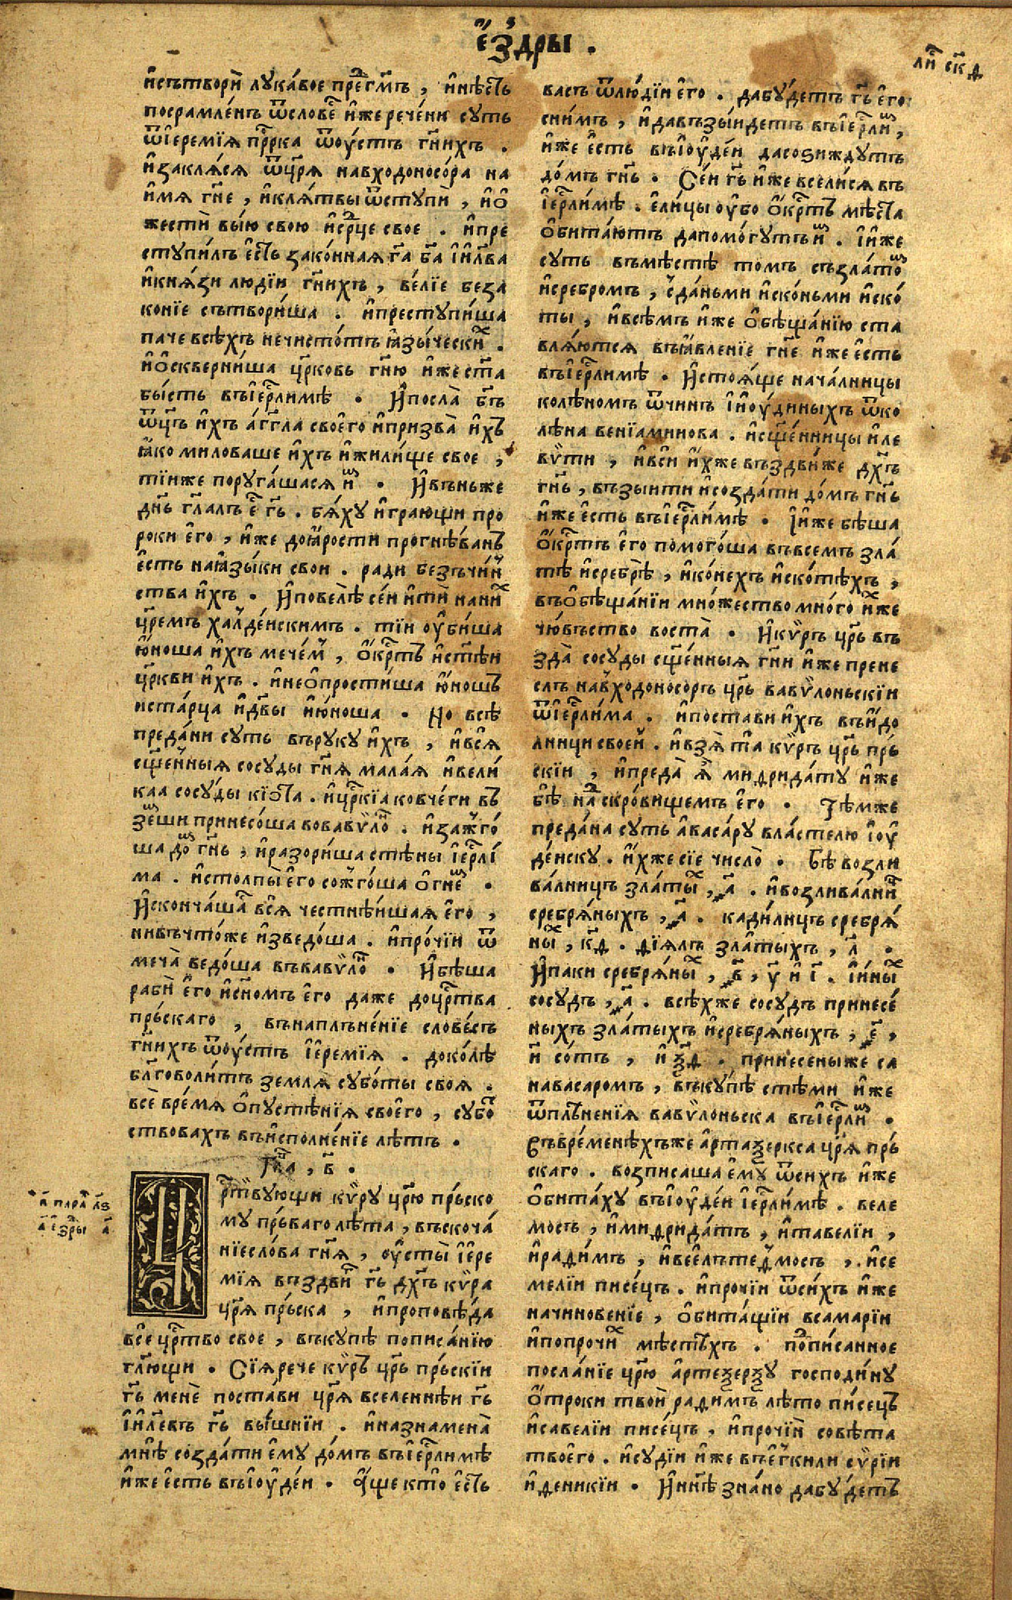 є҆́здры .
ли́ ск҃д
и҆сътвори̏ лука́вое пре́дг҇мъ , и҆нѣ́сть
посрамле́нъ ѿслове́ и҆́же рече́ни суть
ѿі҆еремі́я прⷪ҇рка ѿоу҆́стъ гн҃ихъ .
и҆закля́ся ѿцр҃я навходоносо́ра на
и҆мя гн҃е , и҆кля́твы ѿступи̏ , и҆ѡ҆
жести̏ вы́ю свою и҆ср҃це свое . и҆пре
ступи́лъ є҆сть зако́нная гⷭ҇а бг҃а і҆и҃лва
и҆кня́зи люді́и гн҃ихъ , ве́ліе беза
коніе сътвори́ша . и҆преступи́ша
паче всѣ́хъ нечисто́тъ ꙗ҆зы́чески́ .
и҆ѡ҆скверни́ша цр҃ковь гн҃ю и҆́же ст҃а
бы́сть въі҆ер҃лимѣ . И҆посла̀ бг҃ъ
ѿц҃ъ и҆́хъ а҆́гг҃ла своего̀ и҆призва̀ и҆́хъ
ꙗ҆́ко миловаше и҆́хъ и҆жили́ще свое ,
ті́и же поруга́шася и҆́м . И҆въньже
дн҃ь гл҃алъ є҆ гⷭ҇ь . бя́ху и҆гра́ющи про
роки є҆го̀ , и҆́же доꙗ҆́рости прогнѣ́ванъ
є҆сть наꙗ҆зы́ки свои . ради безъчи́н
ства и҆́хъ . И҆повелѣ̀ се́и и҆ти̏ нани́
цр҃емъ халде́нскимъ . ті́и оу҆би́ша
ю҆́ноша и҆́хъ мече́м , ѡ҆́крⷭ҇тъ и҆ст҃ѣи
цр҃кви и҆́хъ . и҆неѡ҆простиша ю҆́ношъ
и҆ста́рца и҆д҃вы и҆ю҆́ноша . Но всѣ̀
преда́ни суть въруку и҆́хъ , и҆вся̀
сщ҃е́нныя сосу́ды гн҃я мала́я и҆вели́
каа сосу́ды кіѡ҆́та . и҆цр҃кіа ковче́ги въ
зе́мши принесо́ша вовавѷло́ . и҆зажго́
ша до́м гн҃ь , и҆разори́ша стѣны і҆ер҃лі́
ма . и҆столпы̀ є҆го сожго́ша о҆гне́м .
И҆сконча́ша вся̀ честнѣ́ишая є҆го ,
нивъчто́же и҆зведо́ша . и҆про́чіи ѿ
меча̀ ведо́ша въвавѷло́ . И҆бѣ́ша
раби̏ є҆го и҆сн҃омъ є҆го даже доцр҃тва
пръ́скаго , вънаплъне́ніе слове́съ
гн҃ихъ ѿоу҆́стъ і҆еремі́я . доко́лѣ
бл҃говоли́тъ земля̀ субо́ты своя̀ .
все̏ вре́мя ѡ҆пустѣ́нія своего̀ , субо́
ствовахъ въи҆сполне́ніе лѣтъ .
Гла , в҃ .
а҃ пара́ л҃ѕ
а҃ є҆зры а҃
Цр҃твующи кѷру цр҃ю пръ́ско
му пръ́ваго лѣта , въскоча́
ніесло́ва гн҃я , оу҆сты̀ і҆ере
мі́я въздви́ гⷭ҇ь дх҃ъ кѷра
цр҃я пръ́ска , и҆проповѣ́да
все цр҃тво свое , въку́пѣ пописа́нію
гл҃ющи . Сі́я рече кѷръ цр҃ь пръ́скіи
гⷭ҇ь мене̏ поста́ви цр҃я вселеннѣ́и гⷭ҇ь
і҆и҃левъ гⷭ҇ь вы́шніи . и҆назнамена̀
мнѣ̀ созда́ти є҆му до́мъ въі҆ер҃лимѣ
и҆́же є҆сть въі҆оу҆де́и . А҆ще кто̀ є҆сть
васъ ѿлюді́и є҆го . дабу́детъ гⷭ҇ь є҆го
сни́мъ , и҆давъзы́идетъ въі҆ер҃ли́м ,
и҆́же є҆сть въі҆оу҆де́и дасозиждутъ
до́мъ гн҃ь . Се́и гⷭ҇ь и҆́же всели́ся въ
і҆ер҃ли́мѣ . є҆ли́цы оу҆бо ѡ҆́крⷭ҇тъ мѣ́ста
ѡ҆бита́ютъ дапомо́гутъ и҆́м . і҆и҆́же
суть въмѣ́стѣ томъ съзла́том
и҆сребромъ , зда́ньми и҆ско́ньми и҆ско́
ты , и҆всѣ́мъ и҆́же ѡ҆бѣща́нію ста
вля́ются въꙗ҆вле́ніе гн҃е и҆́же є҆сть
въі҆ер҃лимѣ . И҆стоя́ще нача́лницы
колѣ́номъ ѿчи́нъ і҆і҆оу҆́диныхъ ѿко
лѣ́на веніами́нова . и҆сще́нницы и҆ле
вѷти , и҆вси и҆́хже въздви́же дх҃ъ
гн҃ь , възыити и҆созда́ти до́мъ гн҃ь
и҆́же є҆сть въі҆ер҃ли́мѣ . І҆и҆́же бѣ́ша
ѡ҆́крⷭ҇тъ є҆го помого́ша въвсемъ зла́
тѣ и҆сребрѣ̀ , и҆ко́нехъ и҆ско́тѣхъ ,
въѡ҆бѣща́ніи мно́жество мно́го и҆́же
чю́въство воста̀ . И҆кѷръ цр҃ь въ
зда̀ сосу́ды сщ҃е́нныя гн҃и и҆́же прене
слъ навходоносо́ръ цр҃ь вавѷлоньскіи
ѿі҆ер҃ли́ма . и҆поста́ви и҆́хъ въи҆́до
лници свое́й . и҆взя̀ та кѷръ цр҃ь пръ́
скіи , и҆преда̀ ꙗ҆̀ мидрида́ту и҆́же
бѣ̀ над скро́вищемъ є҆го . Тѣ́мже
пре́дана суть а҆васа́ру вла́стелю і҆оу҆
де́нску . и҆́хже сіе число̀ . Бѣ̀ возли
ва́лницъ златы́х , ҂а҃ . и҆возлива́лни́
сребря́ныхъ , ҂а҃ . кади́лницъ сребря́
ны́х , к҃д . діялъ зла́тыхъ , л҃ .
И҆паки сребря́ны́х , ҂в҃ , у҃ и҆ і҃ . і҆и҆́ны́х
сосу́дъ , ҂а҃ . всѣ́хже сосу́дъ принесе́
ныхъ зла́тыхъ и҆сребря́ныхъ , ҂е҃ ,
и҆ со́тъ , и҆ ѯ҃д . принесеныже са
навасаромъ , въку́пѣ стѣми и҆́же
ѿплъне́нія вавѷлоньска въі҆ер҃ли́м .
Въвре́менѣхъже а҆́ртаѯеркса цр҃я пръ́
скаго . возписаша є҆му̀ ѿси́хъ и҆́же
ѡ҆бита́ху въі҆оу҆де́и і҆ер҃ли́мѣ . веле
мосъ , и҆мидрида́тъ , и҆тавелі́и ,
и҆ради́мъ , и҆веѐлътедмосъ , . и҆се
мелі́и писе́цъ . и҆прочі́и ѿси́хъ и҆́же
начиновеніе , ѡ҆бита́щіи всамарі́и
и҆попрочи́х мѣстъхъ . подписанное
посла́ніе цр҃ю а҆ртеѯерѯу господи́ну
Ѻ҆троки твои̏ ради́мъ лѣто писе́цъ
и҆савелі́и писе́цъ , и҆прочі́и совѣ́та
твоего̀ . и҆судіи и҆́же въе҆гкили сѷрі́и
и҆деникі́и . И҆нн҃ѣ зна́но дабу́детъ